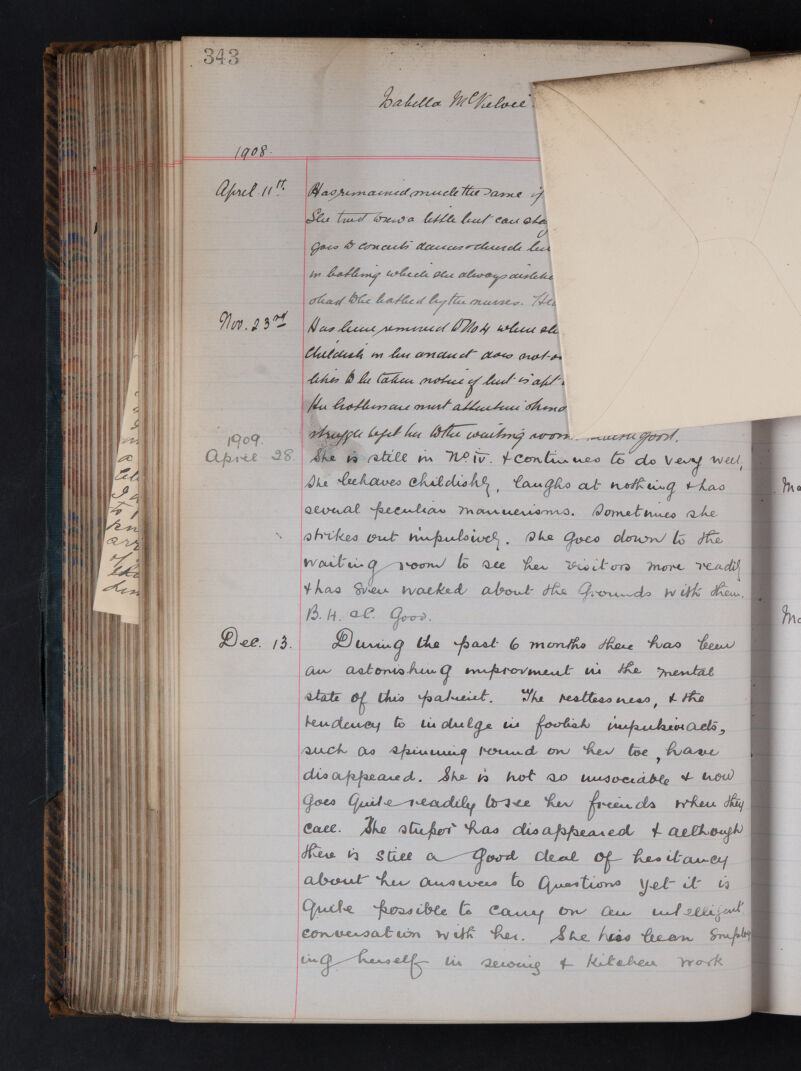 343
Isabella McKelvie
1908.
April 11th. Has remained much the same if
She tried to sew a little but can
goes to concerts dances & church but
in bathing which she always
& had to be bathed by the nurses. Her
Nov. 23rd Has been removed to No 4 where she
childish in her conduct does not
likes to be taken notice of but is apt
Her brothers are most attentive
struggle to get her to the waiting room. good.
1909.
April 28. She is still in No IV. & continues to do very well,
She behaves childishly, laughs at nothing & has
several peculiar mannerisms. Sometimes she
strikes out impulsively. She goes down to the
waiting room to see her visitors more readily
& has even walked about the Grounds with them.
B. H. is Good.
Dec. 13. During the past 6 months there has been
an astonishing improvment in the mental
state of this patient. The restlessness, & the
tendency to indulge in foolish impulsive acts,
such as spinning round on her toe, have
disappeared. She is not so unsociable & now
goes quite readily to see her friends when they
call. The stupor has disappeared & although
there is still a good deal of hesitancy
about her answers to Questions yet it is
quite possible to carry on an intelligent
conversation with her. She has been employ
ing herself in sewing & kitchen work